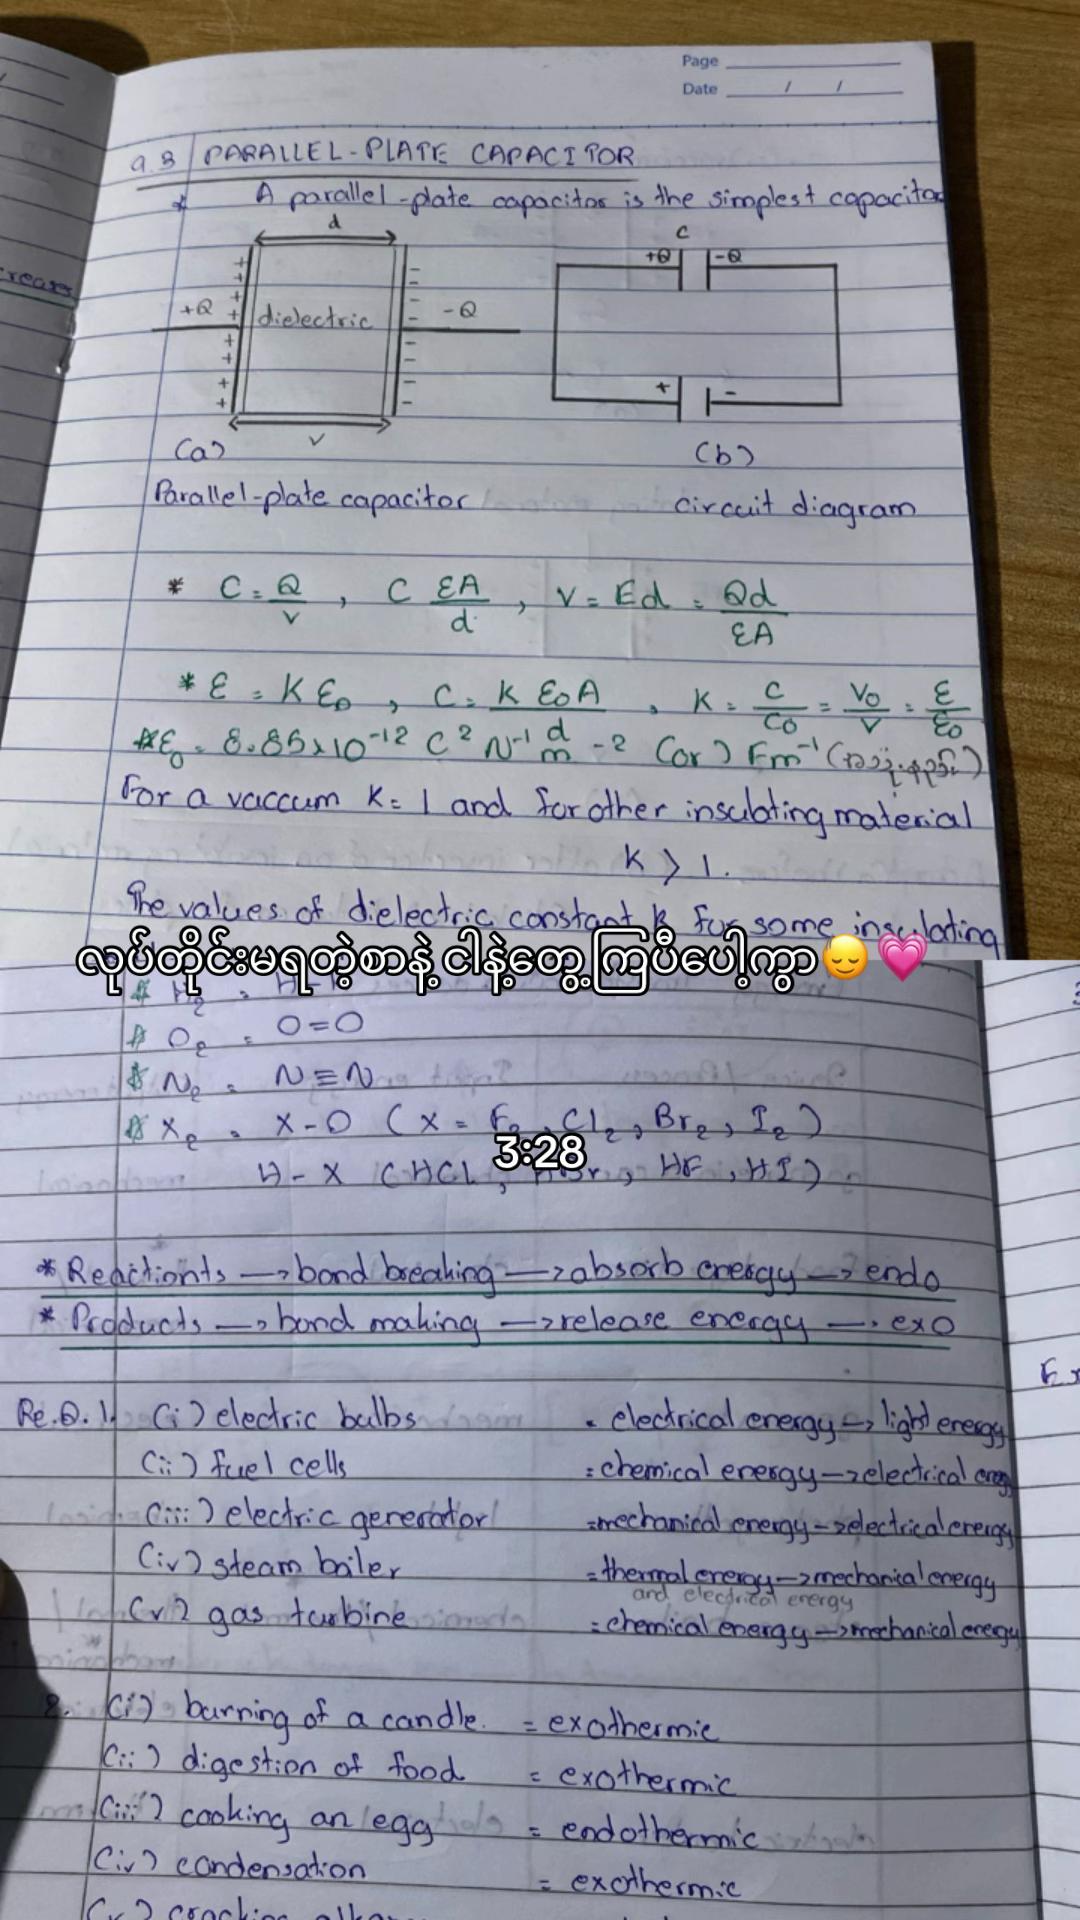 Page
Date / /
9.3 PARALLEL-PLATE CAPACITOR
* A parallel-plate capacitor is the simplest capacitor
d
+Q dielectric -Q
V
(a)
C
+Q -Q
+ -
(b)
Parallel-plate capacitor circuit diagram
* C = Q/V , C εA/d , V = Ed = Qd/εA
* ε = K ε0 , C = K ε0 A/d , K = C/C0 = V0/V = ε/ε0
* ε0 = 8.85x10-12 C2 N-1 m-2 (or) Fm-1
For a vaccum K = 1 and for other insulating material
K > 1.
The values of dielectric constant K for some insulating
လုပ်တိုင်းမရတဲ့စာနဲ့ ငါနဲ့တွေ့ကြပီပေါ့ကွာ😌💗
H2 = H-H
O2 = O=O
N2 = N≡N
X2 = X-O (X = F2, Cl2, Br2, I2)
3:28
H-X (HCl, HBr, HF, HI)
* Reactionts → bond breaking → absorb energy → endo
* Products → bond making → release energy → exo
Re.Q. 1. (i) electric bulbs = electrical energy → light energy
(ii) fuel cells = chemical energy → electrical energy
(iii) electric generator = mechanical energy → electrical energy
(iv) steam boiler = thermal energy → mechanical energy
and electrical energy
(v) gas turbine = chemical energy → mechanical energy
2. (i) burning of a candle = exothermic
(ii) digestion of food = exothermic
(iii) cooking an egg = endothermic
(iv) condensation = exothermic
(v) cracking